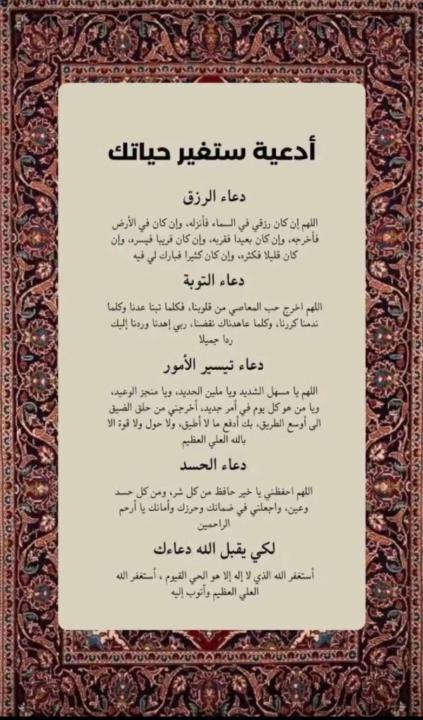 أدعية ستغير حياتك
دعاء الرزق
اللهم إن كان رزقي في السماء فأنزله، وإن كان في الأرض
فأخرجه، وإن كان بعيدا فقربه، وإن كان قريبا فيسره، وإن
كان قليلا فكثره، وإن كان كثيرا فبارك لي فيه
دعاء التوبة
اللهم اخرج حب المعاصي من قلوبنا، فكلما تبنا عدنا وكلما
ندمنا كررنا، وكلما عاهدناك نقضنا، ربي إهدنا وردنا إليك
ردا جميلا
دعاء تيسير الأمور
اللهم يا مسهل الشديد ويا ملين الحديد، ويا منجز الوعيد،
ويا من هو كل يوم في أمر جديد، أخرجني من حلق الضيق
الى أوسع الطريق، بك أدفع ما لا أطيق، ولا حول ولا قوة الا
بالله العلي العظيم
دعاء الحسد
اللهم احفظني يا خير حافظ من كل شر، ومن كل حسد
وعين، واجعلني في ضمانك وحرزك وأمانك يا أرحم
الراحمين
لكي يقبل الله دعاءك
أستغفر الله الذي لا إله إلا هو الحي القيوم ، أستغفر الله
العلي العظيم وأتوب إليه